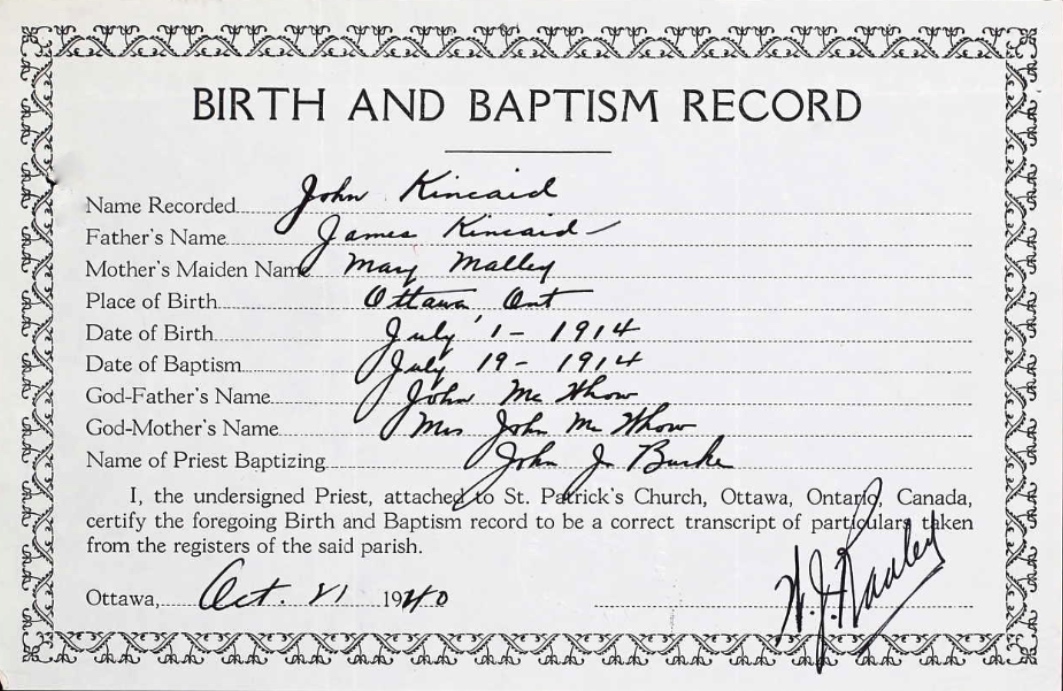 BIRTH AND BAPTISM RECORD
Name Recorded John Kincaid
Father's Name James Kincaid
Mother's Maiden Name Mary Malley
Place of Birth Ottawa, Ont
Date of Birth July 1 - 1914
Date of Baptism July 19 - 1914
God-Father's Name John Mc
God-Mother's Name Mrs John Mc
Name of Priest Baptizing John J. Burke
I, the undersigned Priest, attached to St. Patrick's Church, Ottawa, Ontario, Canada,
certify the foregoing Birth and Baptism record to be a correct transcript of particulars taken
from the registers of the said parish.
Ottawa, Oct. 21 1940